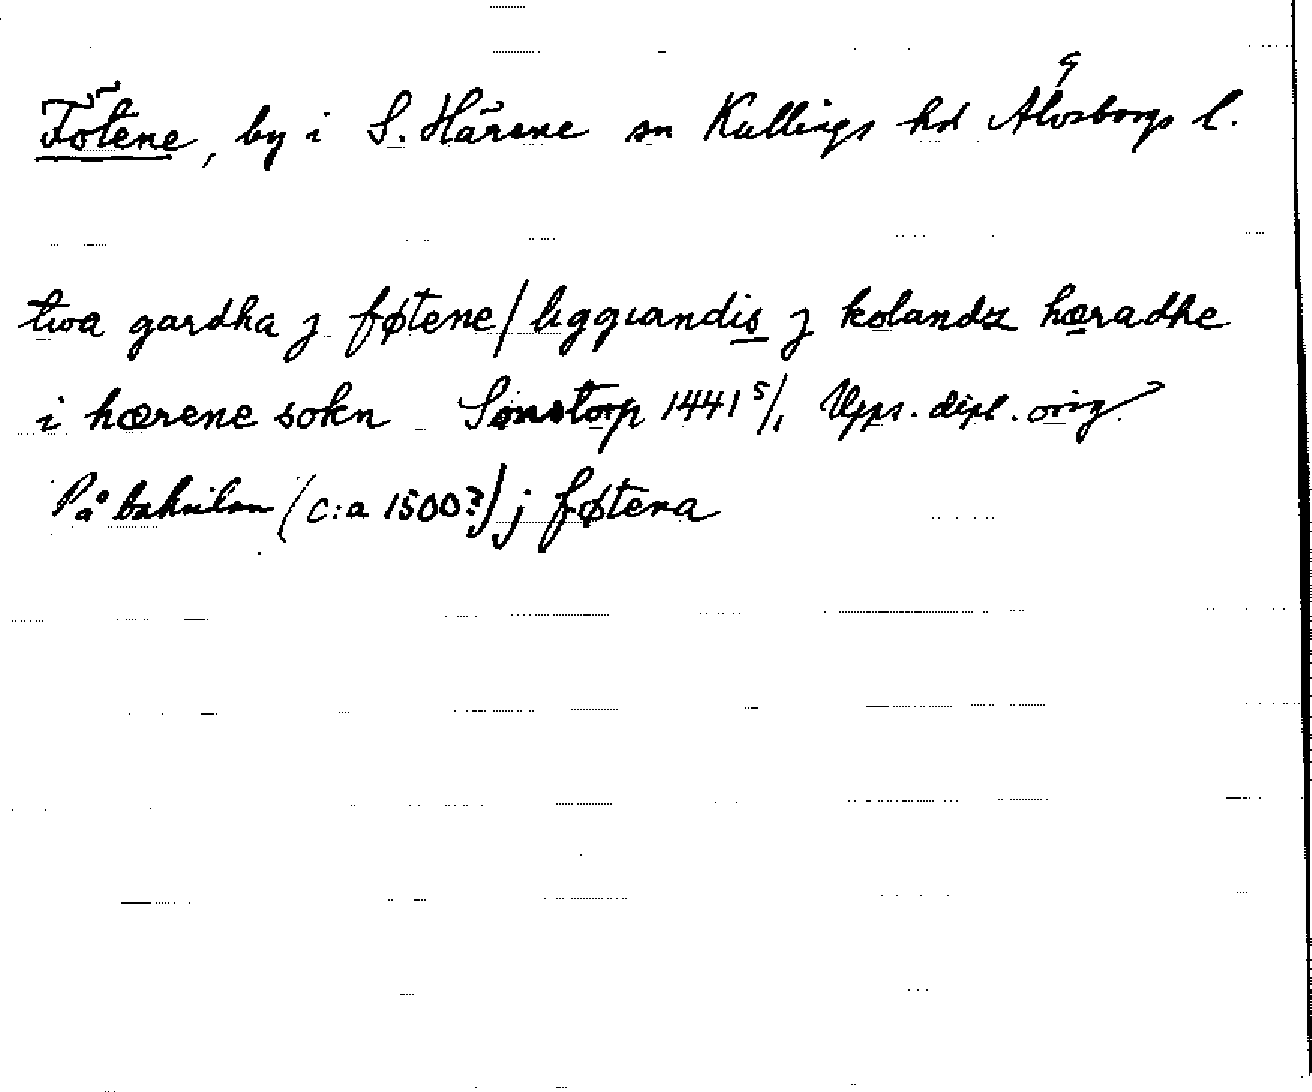 Fötene, by i S. Härene sn Kullings hd Älvsborgs l.
twa gardha j føtene / liggiandis j kolandz hæradhe
i hærene sokn Sonstorp 1441 5/1 Upps. dipl. orig.
På baksidan (c:a 1500?) j føtena